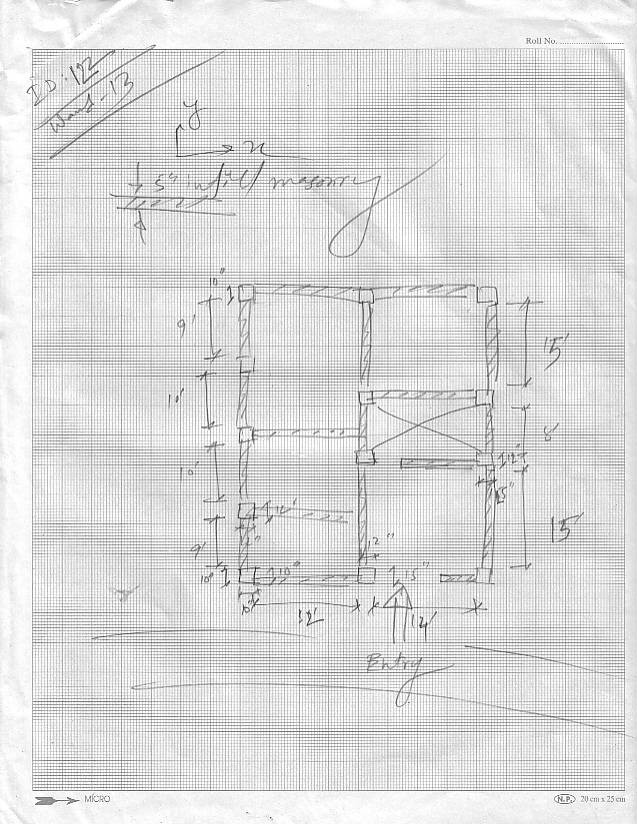 Roll No. ..................
ID: 122
Ward - 13
y
x
5" infill masonry
10"
9'
15'
10'
8'
10'
12"
15"
12"
9'
12"
15'
10"
10"
15"
10"
12'
14'
Entry
MICRO
N.P. 20 cm x 25 cm